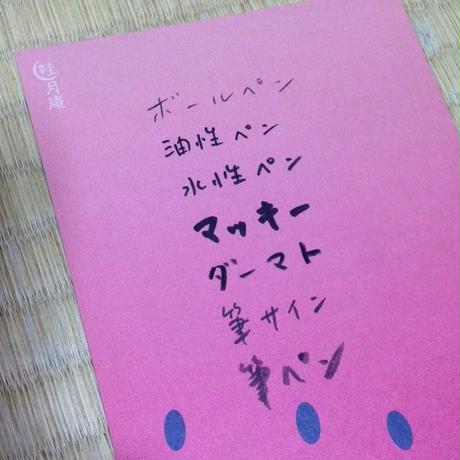 月庵
ボールペン
油性ペン
水性ペン
マッキー
ダーマト
筆サイン
筆ペン